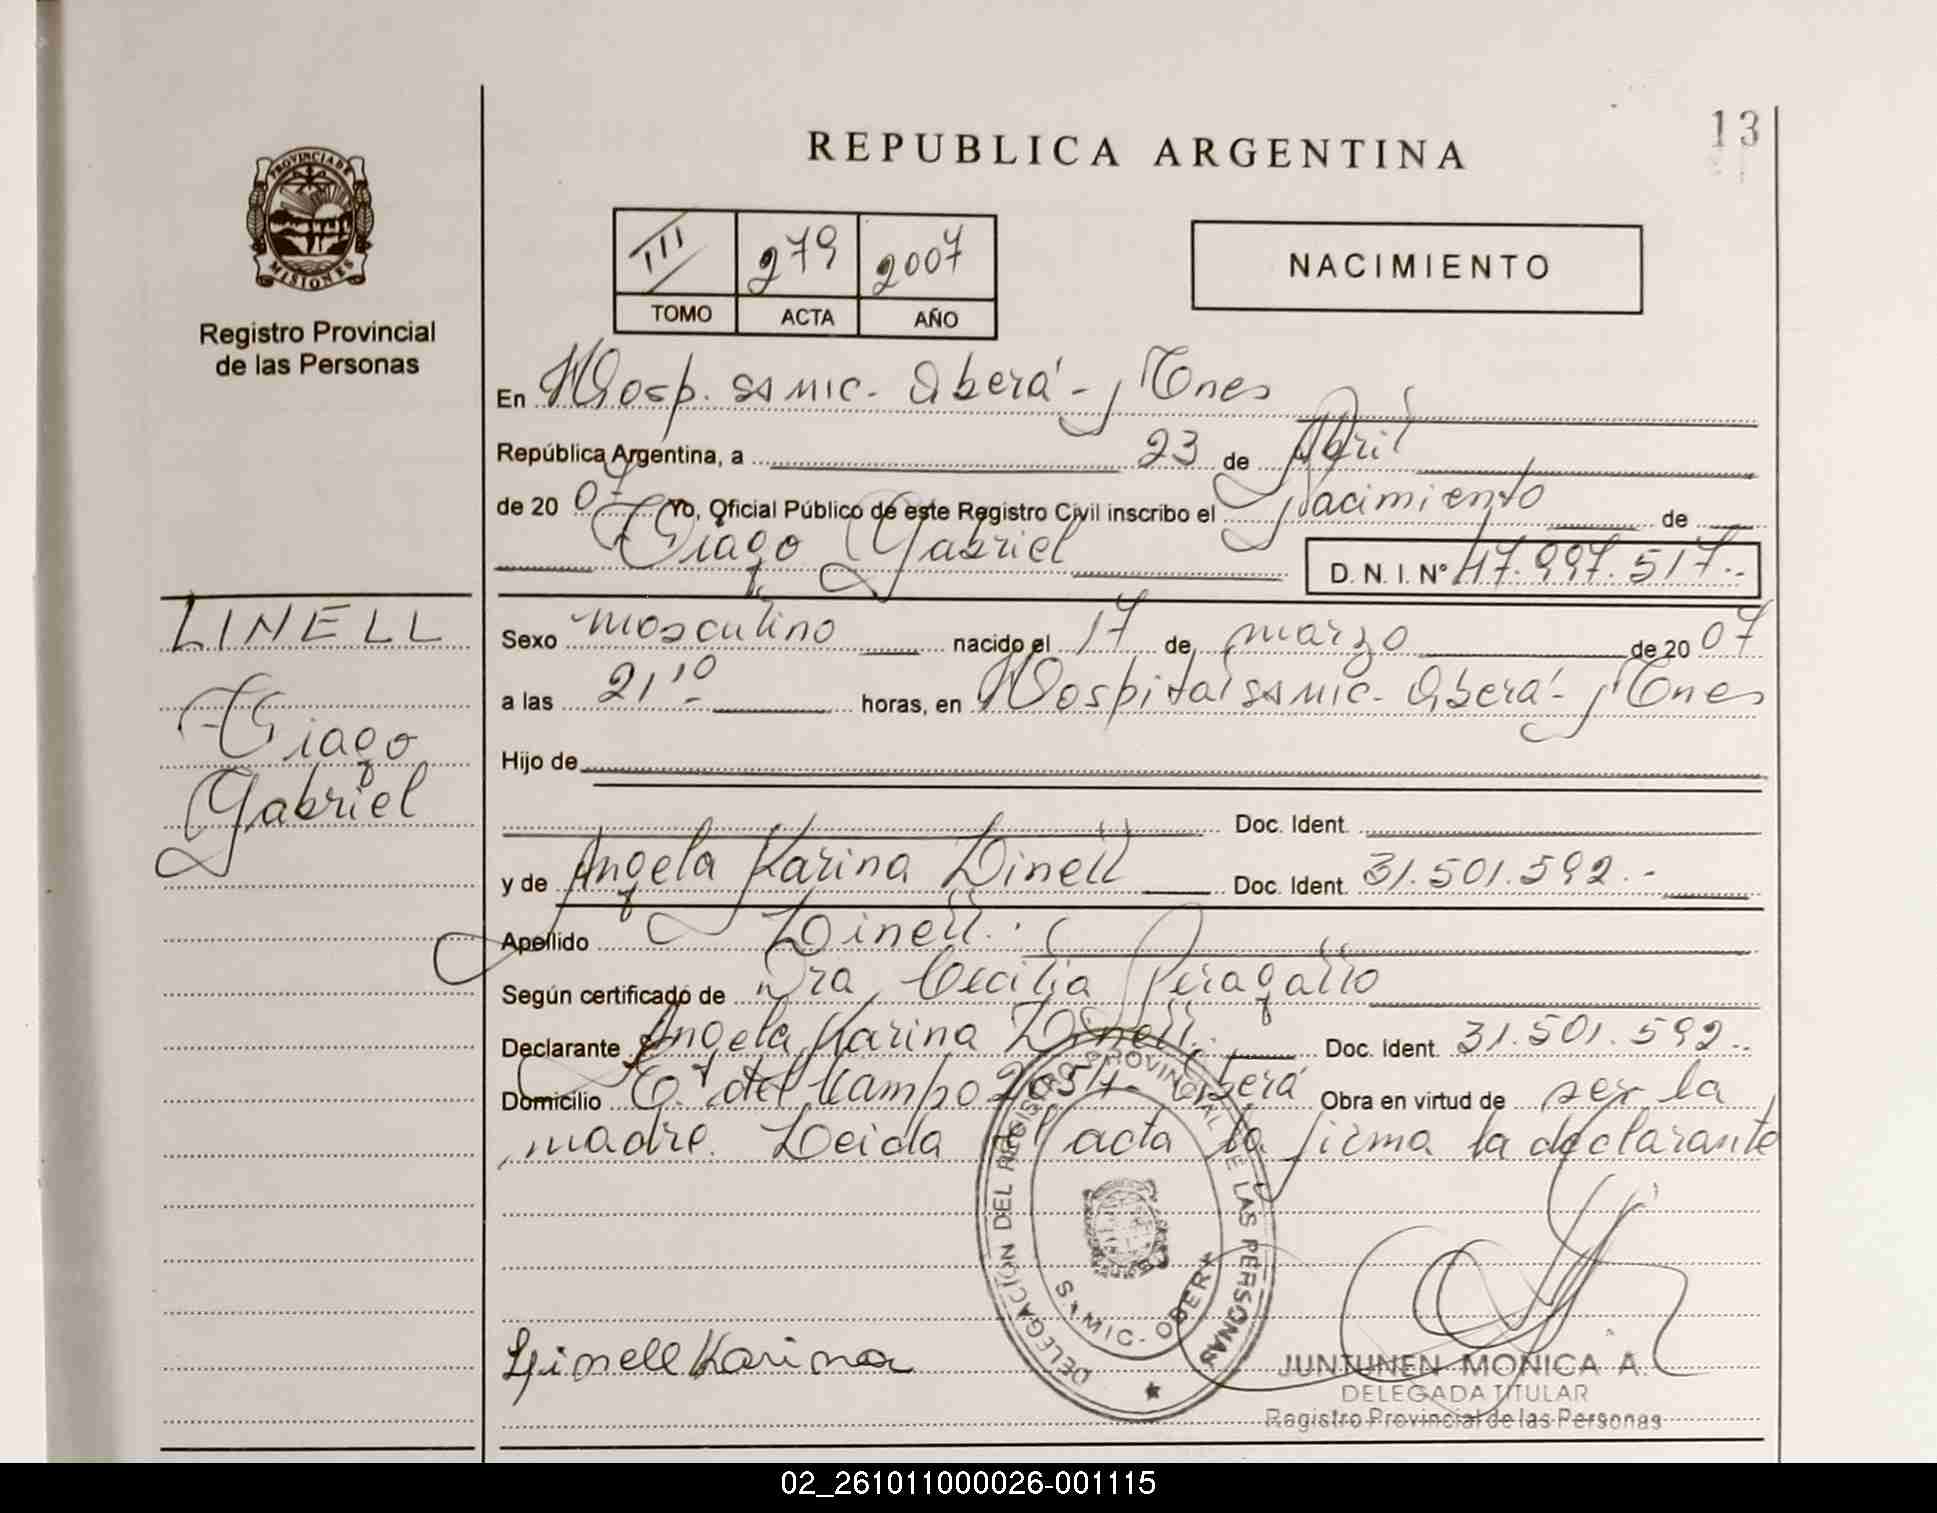 13
REPUBLICA ARGENTINA
PROVINCIA DE
MISIONES
Registro Provincial
de las Personas
III 279 2007
TOMO ACTA AÑO
NACIMIENTO
En Hosp. SAMIC - Oberá - Mnes
República Argentina, a 23 de Abril
de 20 07 Yo, Oficial Público de este Registro Civil inscribo el Nacimiento de
Tiago Gabriel D. N. I. Nº 47.997.517.-
LINELL
Tiago
Gabriel
Sexo masculino nacido el 17 de marzo de 20 07
a las 21,10 horas, en Hospital SAMIC - Oberá - Mnes
Hijo de
Doc. Ident.
y de Angela Karina Linell Doc. Ident. 31.501.592.-
Apellido Linell.
Según certificado de Dra Cecilia Peragallo
Declarante Angela Karina Linell. Doc. Ident. 31.501.592..
Domicilio del Oberá Obra en virtud de ser la
madre. Leida el acta la firma la declarante
DELEGACIÓN DEL REGISTRO PROVINCIAL DE LAS PERSONAS
SAMIC - OBERA
Linell Karina
JUNTUNEN MONICA A.
DELEGADA TITULAR
Registro Provincial de las Personas
02_261011000026-001115